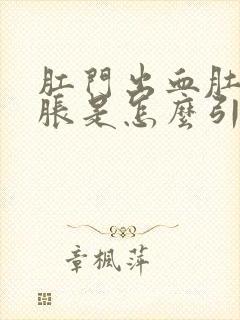 肛門出血肚
脹是怎麼引
章楓萍